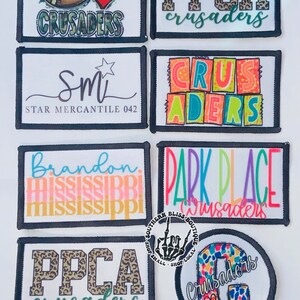 CRUSADERS
PPCA
crusaders
Sm
STAR MERCANTILE 042
CRUS
ADERS
Brandon,
mississippi
mississippi
mississippi
PARK PLACE
Crusaders
SOUTHERN BLISS BOUTIQUE
PPCA
crusaders
Crusaders